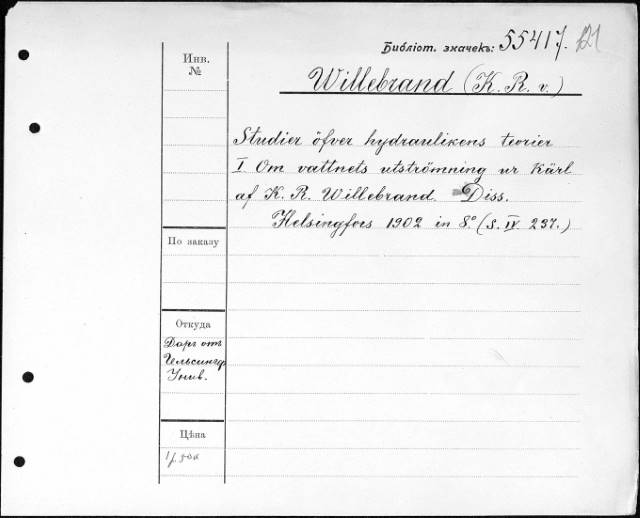 Библіот. значекъ: 55417. 121
Инв.
№
Willebrand (K. R. v.)
Studier öfver hydraulikens teorier
I Om vattnets utströmning ur kärl
af K. R. Willebrand. Diss.
Helsingfors 1902 in 8º. (S. IV. 237.)
По заказу
Откуда
Даръ отъ
Гельсингф.
Унив.
Цѣна